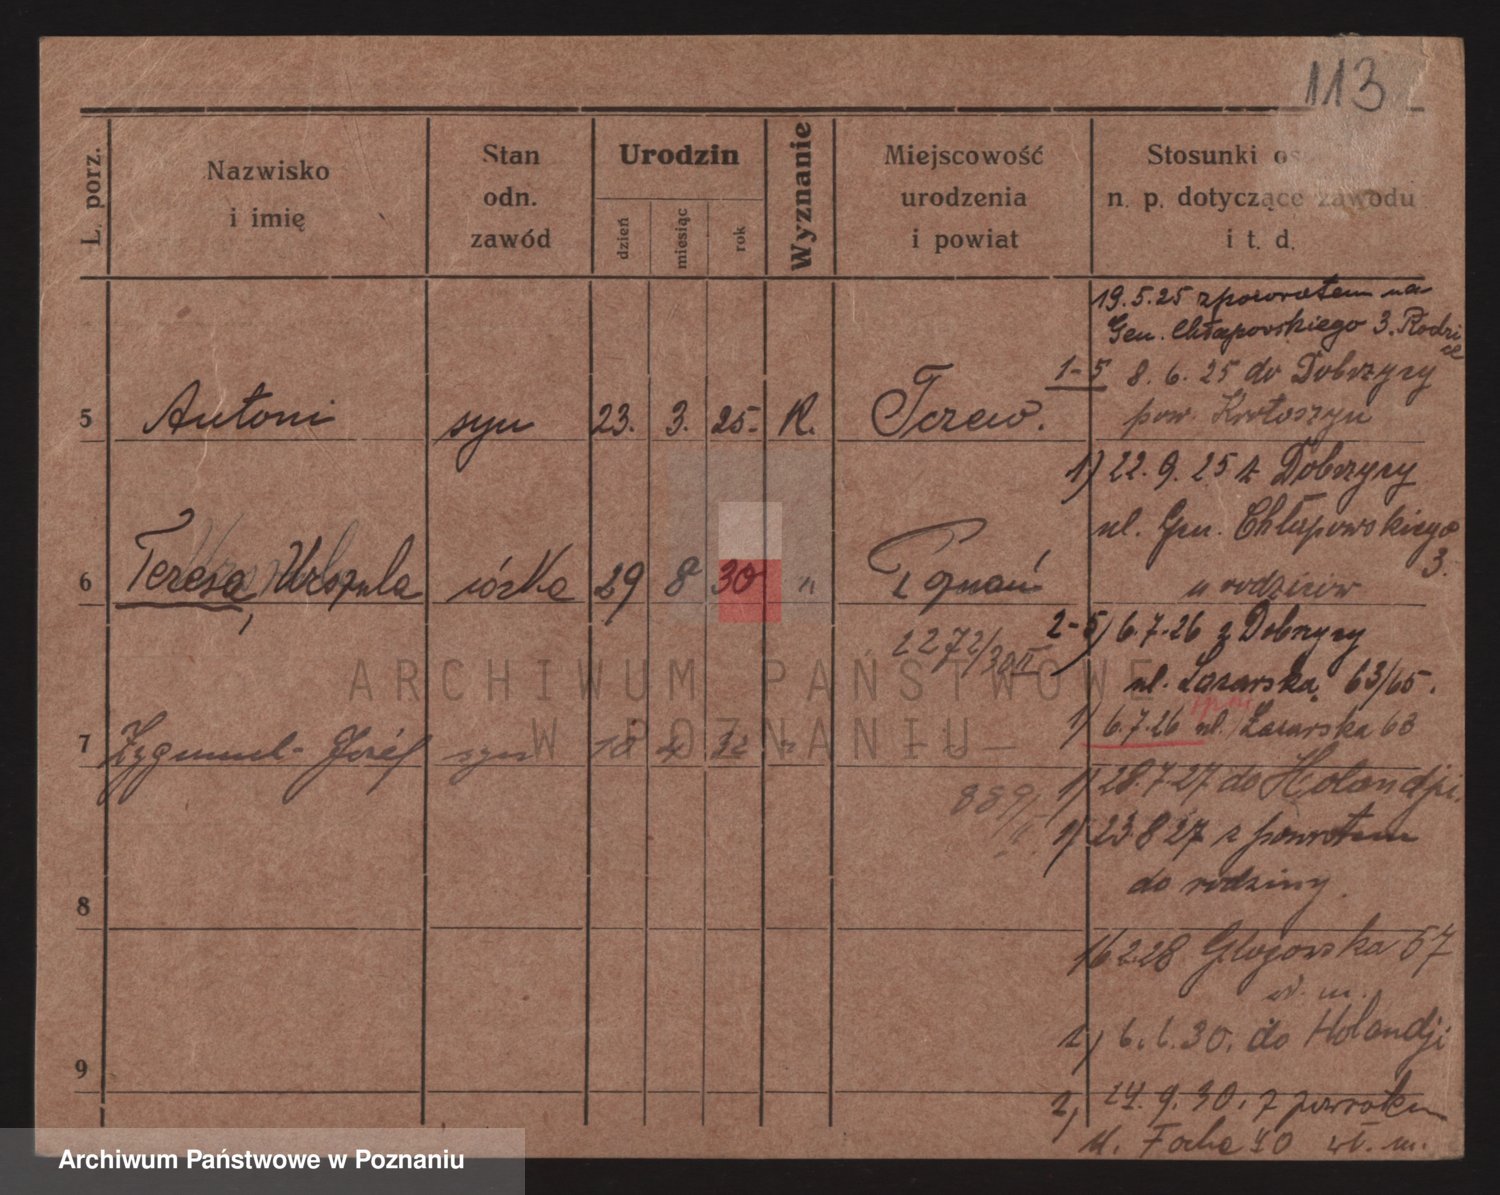 113
L. porz.
Nazwisko
i imię
Stan
odn.
zawód
Urodzin
dzień
miesiąc
rok
Wyznanie
Miejscowość
urodzenia
i powiat
Stosunki
n. p. dotyczące zawodu
i t. d.
19.5.25 z powrotem na
Gen. Chłapowskiego 3. Rodzi
ce
1-5 8. 6. 25 do Dobrzycy
pow. Krotoszyn
5 Antoni syn 23. 3. 25. R. Tczew.
1) 22. 9. 25 z Dobrzycy
ul. Gen. Chłapowskiego
3.
u rodziców
6 Teresa, Urszula córka 29 8 30 " Poznań
2272/30 II
2-5) 6.7.26 z Dobrzycy
ul. Łazarska 63/65.
1) 6.7.26 ul. Łazarska 63
7 Zygmunt Józef syn 18 4 32 " — " —
889/
1) 28.7.27 do Holandji.
1) 23.8.27 z powrotem
do rodziny.
8
16 2.28 Głogowska 57
w. m.
1) 6.6.30. do Holandji
9
1, 24. 9. 30. z powrotem
ul. Focha 40 w. m.
ARCHIWUM PAŃSTWOWE
W POZNANIU
Archiwum Państwowe w Poznaniu